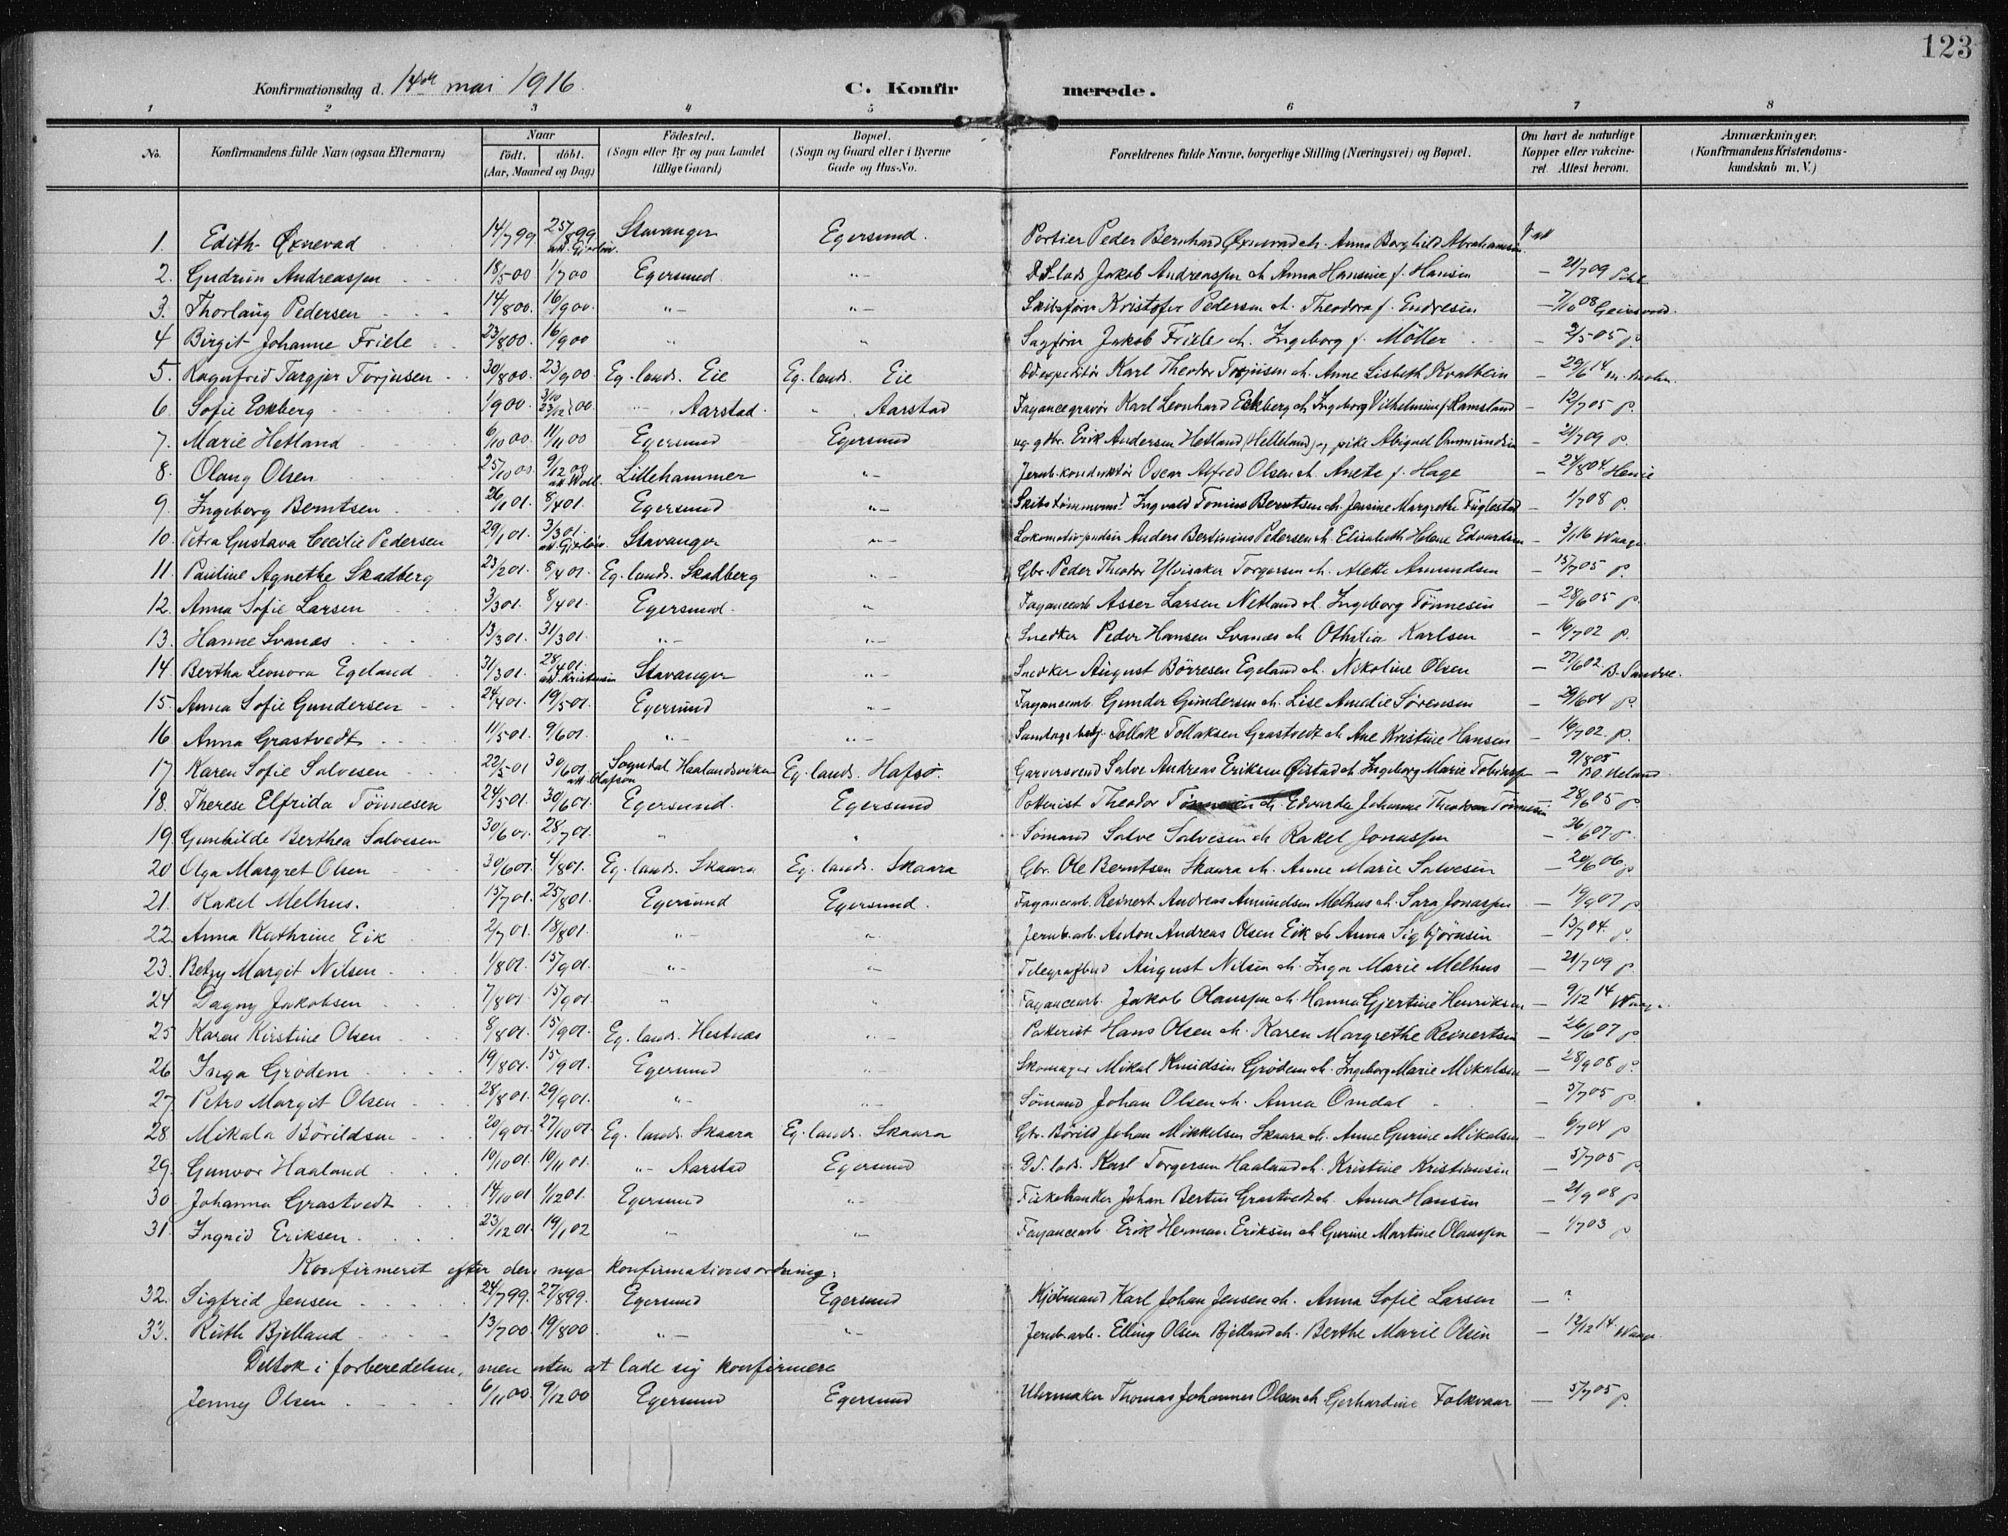 123
Konfirmationsdag d. 14de mai 1916.
C. Konfirmerede.
1 2 3 4 5 6 7 8
No. Konfirmandens fulde Navn (ogsaa Efternavn) Naar født. døbt. (Aar, Maaned og Dag) Födested. (Sogn eller By og paa Landet tillige Gaard) Bopæl. (Sogn og Gaard eller i Byerne Gade og Hus-No. Forældrenes fulde Navne, borgerlige Stilling (Næringsvei) og Bopæl. Om havt de naturlige Kopper eller vakcineret. Attest herom. Anmærkninger. (Konfirmandens Kristendomskundskab m. V.)
1. Edith Øxnevad 14/7 99 25/8 99 Stavanger Egersund. Portier Peder Bernhard Øxnevad &. Anna Borghild Abrahamsen
2. Gudrun Andreassen 18/5 00 1/7 00 Egersund. "- Jakob Andreassen & Anna Hansine f. Hansen — 21/7 09
3. Thorlaug Pedersen 14/8 00. 16/9 00. "- "- Skibsfører Kristofer Pedersen &. Theodora f. Endresen — 7/10 08
4 Birgit Johanne Friele 23/8 00. 16/9 00 " " Sagfører Jakob Friele &. Ingeborg f. Möller — 2/5 05 p.
5. Ragnfrid Targjer Torjusen 30/8 00. 23/9 00. Eg. lands. Eie Eg. lands. Eie Karl Theodor Torjusen &. Anne Lisbeth Kvalbein — 29/6 14
6. Sofie Eckberg 1/9 00. "- Aarstad. " Aarstad Fayancegravør Karl Leonhard Eckberg & Ingeborg Vilhelmine f. Ramsland — 12/7 05 p.
7. Marie Hetland 6/10 00. 11/11 00 Egersund Egersund Erik Andersen Hetland (Helleland) og pike Abigael Ommundsen — 21/7 09 p.
8. Olaug Olsen 25/10 00. 9/12 00 Lillehammer "- Jernb.konduktør Oscar Alfred Olsen & Anete f. Hage — 24/8 04.
9. Ingeborg Berntsen 26/1 01. 8/4 01 Egersund "- Skibstømmerm. Ingvald Tomius Berntsen &. Jensine Margrethe Fuglestad — 1/7 08 p.
10. Petra Gustava Cecilie Pedersen 29/1 01. 3/3 01. Stavanger "- Anders Bertinius Pedersen &. Elisabeth Helene Edvardsen — 3/1 16 Waage
11. Pauline Agnethe Skadberg 23/2 01. 8/4 01. Eg. lands. Skadberg "- Gbr. Peder Theodor Ylvisaker Torgersen &. Alette Amundsen — 15/7 05 p.
12. Anna Sofie Larsen 3/3 01. 8/4 01. Egersund. " Fayancearb. Asser Larsen Netland & Ingeborg Tønnesen — 28/6 05 p.
13. Hanne Svanes 13/3 01. 31/3 01. "- "- Snedker Peder Hansen Svanes & Othilia Karlsen — 16/7 02 p.
14 Bertha Leonora Egeland 31/3 01. 28/4 01. att. Kristensen Stavanger "- Snedker August Börresen Egeland &. Nikoline Olsen — 27/6 02 B. Sandve.
15. Anna Sofie Gundersen 24/4 01. 19/5 01. Egersund "- Fayancearb. Gunder Gundersen &. Lise Amelie Sørensen — 29/6 04 p.
16 Anna Grastvedt 11/5 01 9/6 01. "- "- Tollak Tollaksen Grastvedt &. Ane Kristine Hansen — 16/7 02. p.
17 Karen Sofie Salvesen 22/5 01 30/6 01 att. Olafson Sogndal Haalandsviken Eg. lands. Hafsø. Garversvend Salve Andreas Eriksen Øistad &. Ingeborg Marie — 9/8 05
18. Therese Elfrida Tönnesen 24/5 01. 30/6 01. Egersund. Egersund Potterist Theodor Tönnesen &. Edvarda Johanne Theodora Tönnesen — 28/6 05 p.
19. Gunhilde Berthea Salvesen 30/6 01. 28/7 01. " " Sømand Salve Salvesen & Rakel Jonassen — 26/6 07 p.
20 Olga Margret Olsen 30/6 01. 4/8 01. Eg. lands. Skaara Eg. lands. Skaara Gbr. Ole Berntsen Skaara &. Anne Marie Salvesen — 20/6 06 p
21. Rakel Melhus. 15/7 01. 25/8 01. Egersund Egersund. Fayancearb. Reinert Andreas Amundsen Melhus &. Sara Jonassen — 19/9 07 p
22. Anna Kathrine Eik 2/7 01. 18/8 01. "- "- Jernb.arb. Anton Andreas Olsen Eik & Anna Sigbjørnsen — 13/7 04. p.
23. Betzy Margit Nilsen 1/8 01. 15/9 01. "- "- Telegrafbud August Nilsen &. Inger Marie Melhus — 21/7 09 p.
24 Dagny Jakobsen 7/8 01 15/9 01. " " Fayancearb. Jakob Olaussen &. Hanna Gjertine Henriksen — 9/12 14 Waage.
25 Karen Kirstine Olsen 8/8 01. 15/9 01. Eg. lands. Hestnæs "- Pakerist Hans Olsen &. Karen Margrethe Reinertsen — 26/6 07 p
26 Inga Grödem 19/8 01. 15/9 01. Egersund "- Skomager Mikal Knudsen Grødem &. Ingeborg Marie Mikalsen — 28/9 08 p.
27 Petro Margit Olsen 28/8 01 29/9 01. "- "- Sømand Johan Olsen &. Anna Omdal — 5/7 05 p.
28. Mikala Börildsen 20/9 01 27/10 01. Eg. lands. Skaara Eg. lands. Skaara Gbr. Börild Johan Mikkelsen Skaara &. Anne Gurine Mikalsen — 6/7 04 p
29. Gunvor Haaland 10/10 01. 10/11 01. "- Aarstad Egersund Karl Torgersen Haaland &. Kristine Kristiansen — 5/7 05 p.
30 Johanna Grastvedt 14/10 01 1/12 01. Egersund "- Fiskehandler Johan Bertin Grastvedt &. Anna Hansen — 21/9 08 p
31. Ingrid Eriksen 23/12 01. 19/1 02 " "- Fayancearb. Erik Herman Eriksen & Gurine Martine Olaussen — 1/7 03 p
Konfirmeret efter den nye konfirmationsordning:
32. Sigfrid Jensen 24/7 99. 27/8 99. Egersund Egersund Kjöbmand Karl Johan Jensen &. Anna Sofie Larsen — ?
33. Ruth Bjelland 13/7 00 19/8 00. "- "- Jernb.arb. Elling Olsen Bjelland &. Berthe Marie Olsen — 12/12 14 Waage
Deltok i forberedelsen, men uten at lade sig konfirmere
Jenny Olsen 6/11 00. 9/12 00 Egersund Egersund Uhrmaker Thomas Johannes Olsen & Gerhardine Folkvaar — 5/7 05 p.